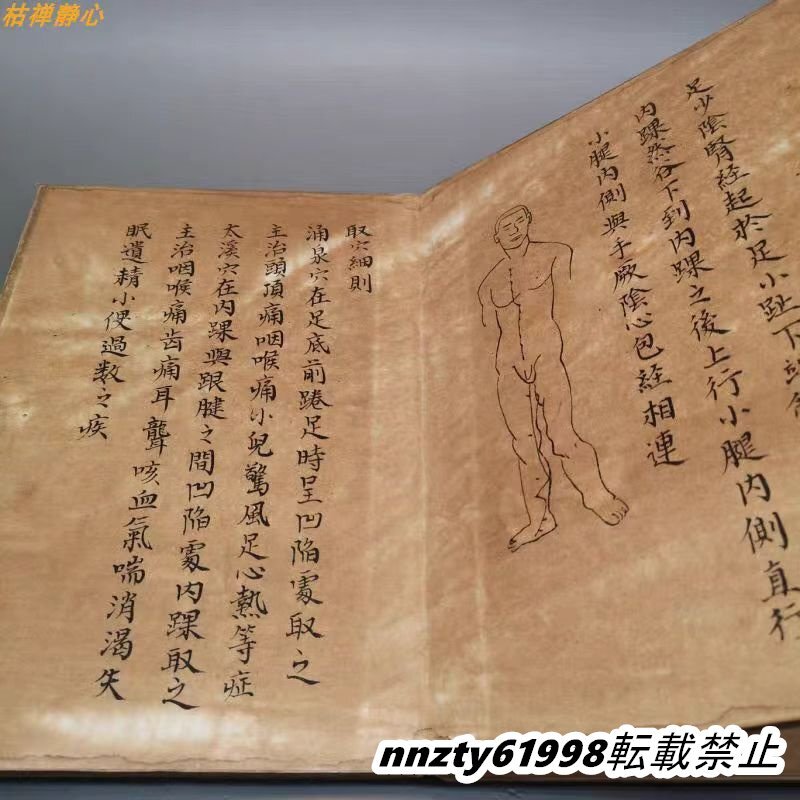 枯禅静心
足少陰腎經起於足小趾下
內踝然谷下到內踝之後上行小腿內側直行
小腿內側與手厥陰心包經相連
取穴細則
涌泉穴在足底前踡足時呈凹陷處取之
主治頭頂痛咽喉痛小兒驚風足心熱等症
太溪穴在內踝與跟腱之間凹陷處內踝取之
主治咽喉痛齒痛耳聾咳血氣喘消渴失
眠遺精小便過数之疾
nnzty61998転載禁止